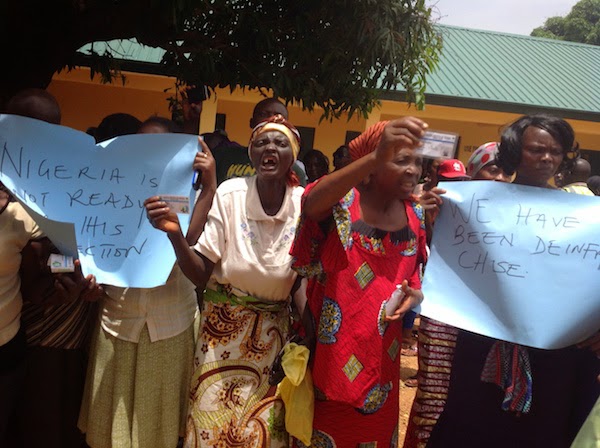 NIGERIA IS
NOT READY
THIS
ECTION
WE HAVE
BEEN DEINFR
CHISE.